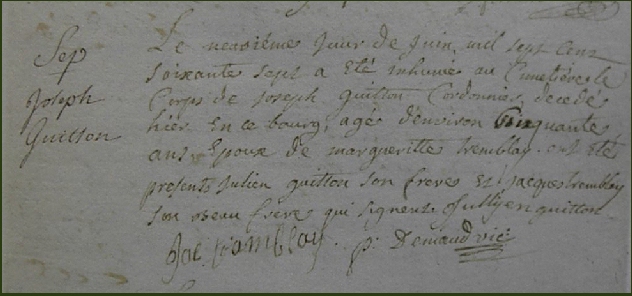 Sep
Joseph
Guitton
Le neuvième Jour de Juin mil sept cens
soixante sept a été inhumé au Cimetière le
Corps de Joseph guitton Cordonnier decedé
hier en ce bourg, agé d'environ Cinquante
ans Epoux de margueritte tremblay. ont été
presents Julien guitton son frere Et jacques tremblay
son beau frere qui signent Jullyen guitton
Jac tramblay p. Demaud vic.